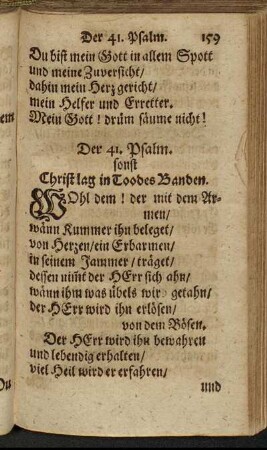 Der 41. Psalm. 159
Du bist mein Gott in allem Spott
und meine Zuversicht/
dahin mein Herz gericht/
mein Helfer und Erretter.
Mein Gott! drüm säume nicht!
Der 41. Psalm.
sonst
Christ lag in Toodes Banden.
WOhl dem! der mit dem Ar-
men/
wann Kummer ihn beleget/
von Herzen/ein Erbarmen/
in seinem Jammer/träget/
dessen nim̃t der HErr sich ahn/
wann ihm was übels wird getahn/
der HErr wird ihn erlösen/
von dem Bösen.
Der HErr wird ihn bewahren
und lebendig erhalten/
viel Heil wird er erfahren/
und